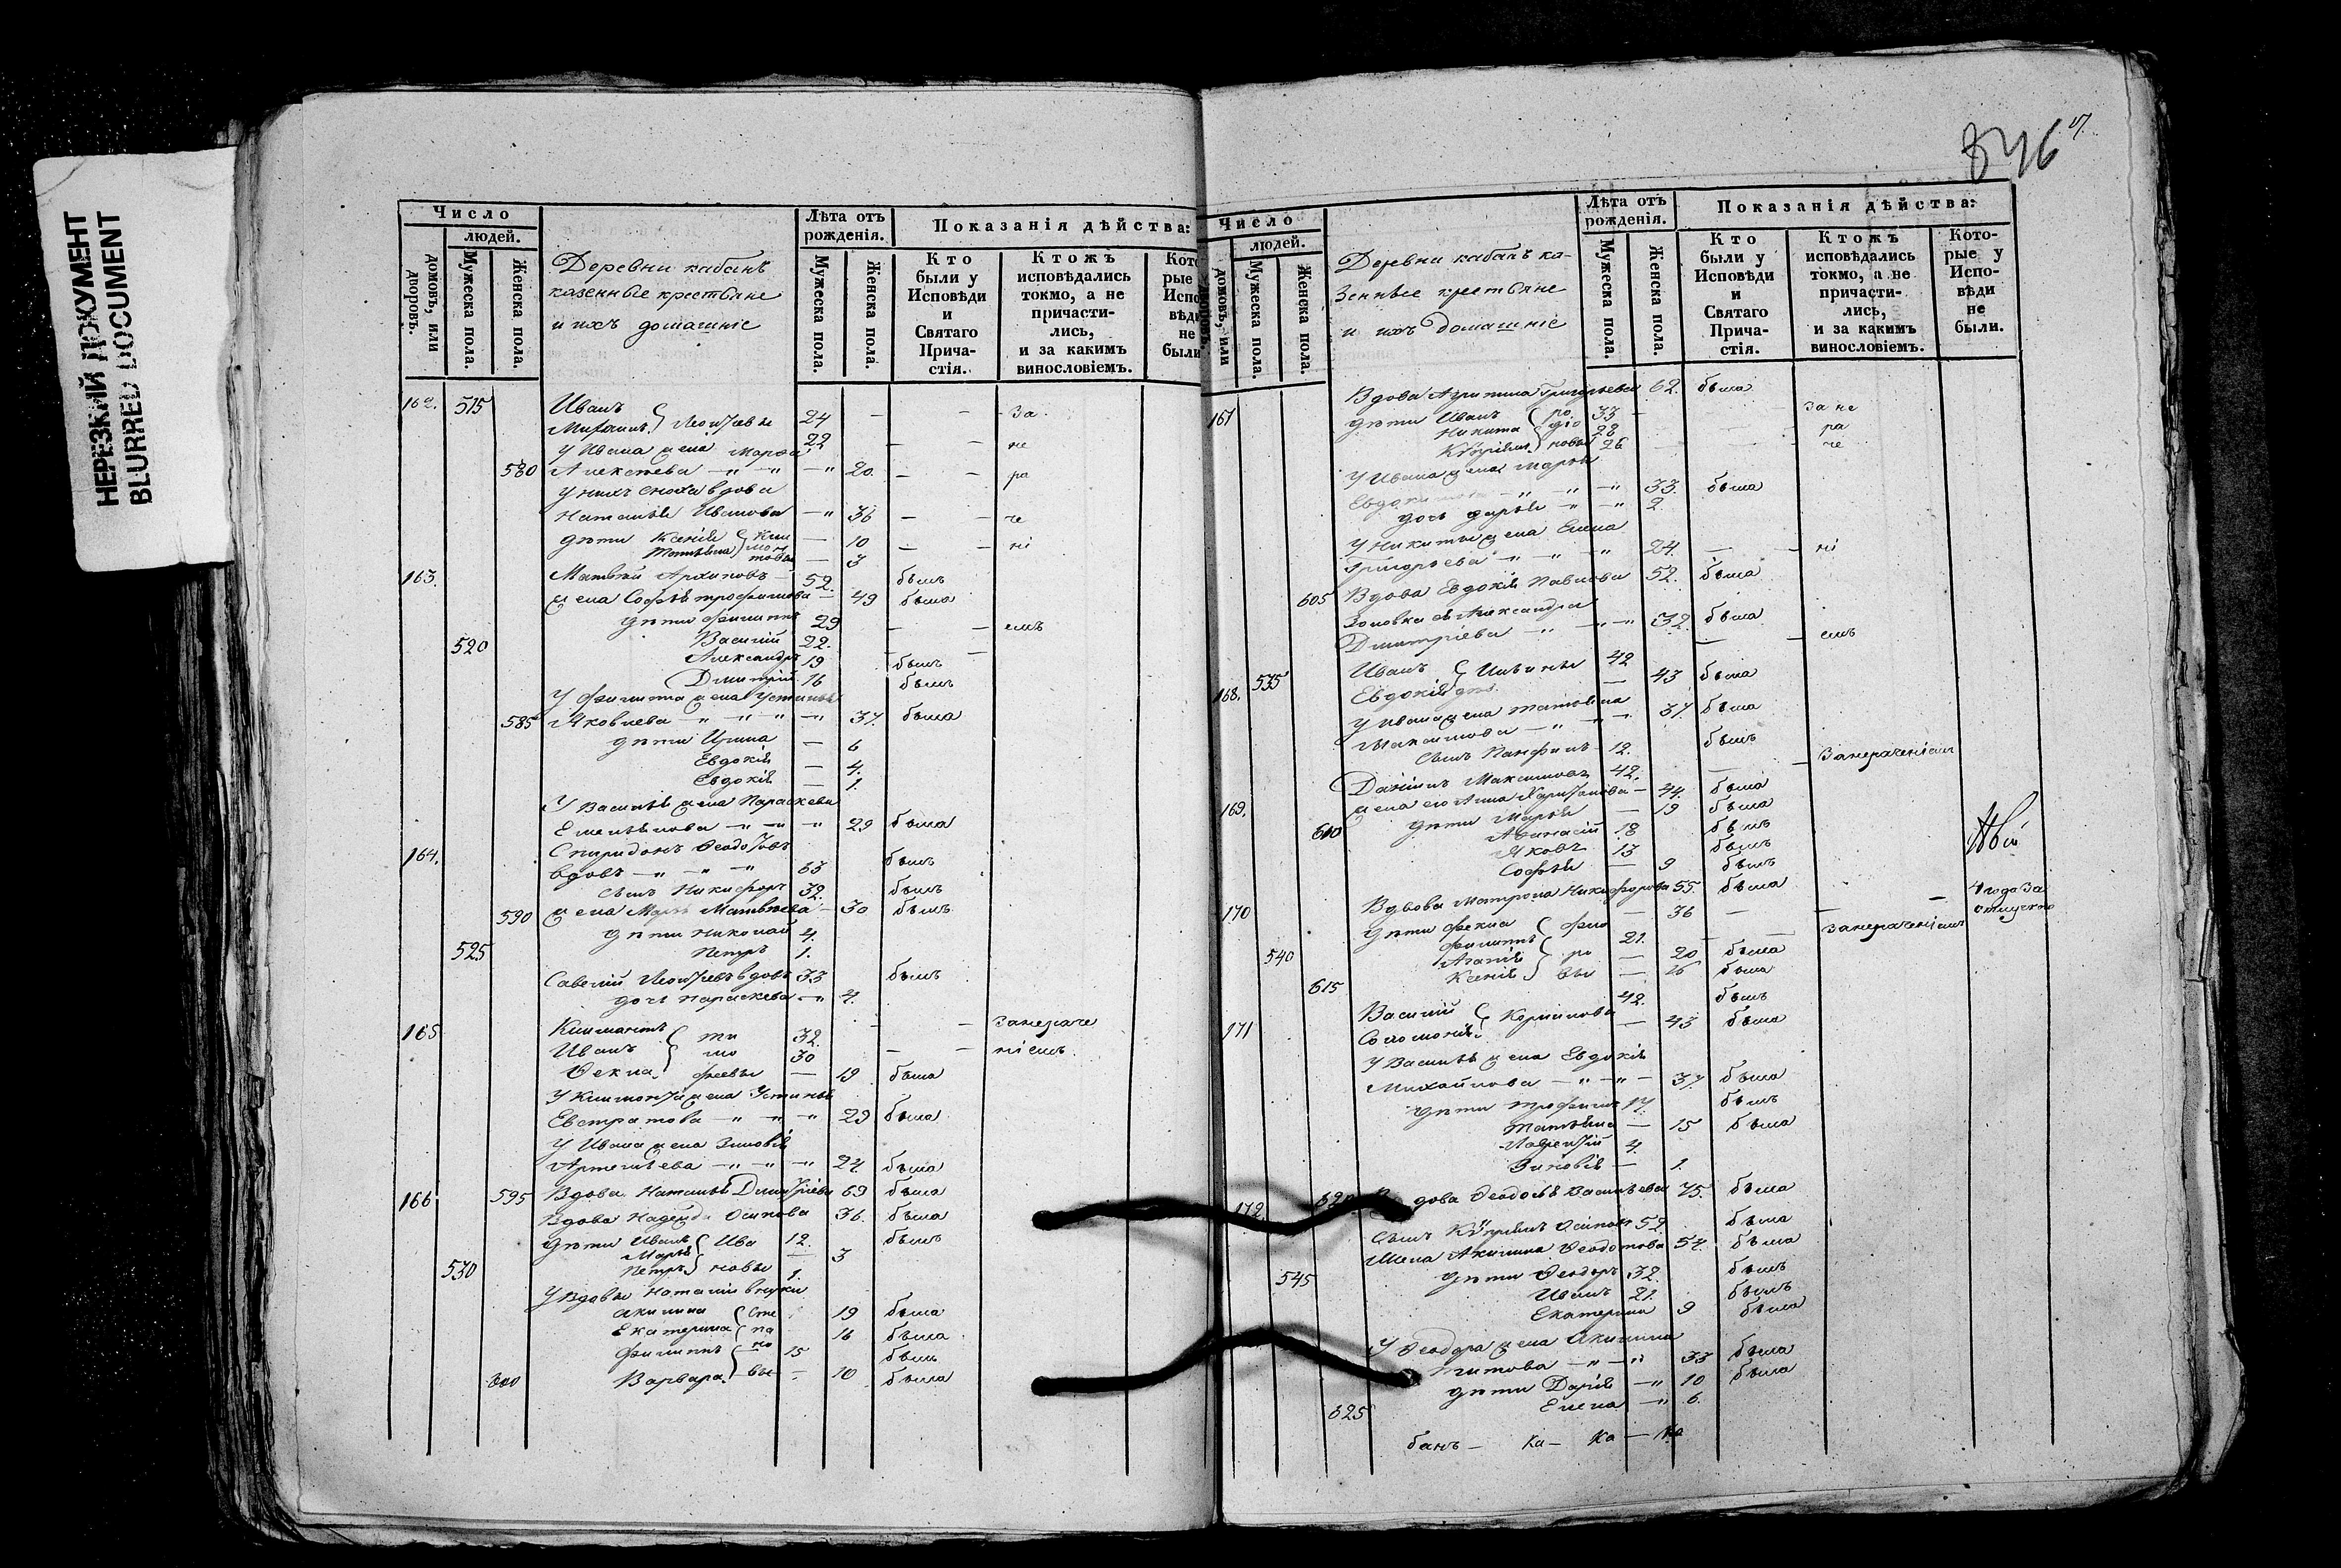 НЕРЕЗКИЙ ДОКУМЕНТ
BLURRED DOCUMENT
Число
людей.
домовъ, или дворовъ.
Мужеска пола.
Женска пола.
Деревни кабанъ
казенные крестьяне
и ихъ домашніе
Лѣта отъ рожденія.
Мужеска пола.
Женска пола.
Показанія дѣйства:
Кто были у Исповѣди и Святаго Прича-стія.
Ктожъ исповѣдались токмо, а не причасти-лись, и за какимъ винословіемъ.
162. 515 Иванъ
Михаилъ } Леонтьевы 24 — — За
У Ивана жена Марѳа 22 — — не
580 Алексѣева — " — " — " 20 — ра
у нихъ сноха вдова
Наталья Иванова — " 36 — — че
дѣти Ксенія — 10 — — ні
Татьяна — 3
163. Матвѣй Архиповъ — 52. былъ
жена Софья Трофимова — 49 была
дѣти Филиппъ 29 — — емъ
520 Василій 22. — —
Александръ 19 былъ
Дмитрій 16 былъ
У Филиппа жена Устинья
585 Яковлева — " — " — " — " 37. была
дѣти Ирина — 6
Евдокія — 4.
Евдокія — 1.
У Василья жена Параскева
Емельянова — " — " — " 29 была
164. Спиридонъ Ѳеодотовъ
вдовъ — " — " — " 63 былъ
сынъ Никифоръ 32. былъ
590 жена Матвѣева — 30
дѣти Николай 4.
525 Петръ 1.
Савелій Леонтьевъ вдовъ 33 былъ
дочь Параскева — " 4.
165 Климонтъ { ти 32. — — За нераче
Иванъ { мо 30 — — ніемъ.
Ѳекла } ѳеевы — 19 была
У Климонтья жена Устинья
Евстратова — " — " — " 29 была
У Ивана жена Зиновія
Артемьева — " — " — " 24. была
166 595 Вдова Наталья Дмитріева 69 была
Вдова Надежда Осипова 36. была
дѣти Иванъ { Ива 12. былъ
Марья — 3
530 Петръ } новы 1.
У Вдовы Наталіи внуки
Акилина { Сте 19 была
Екатерина { па 16 была
Филиппъ } но 15 былъ
600 Варвара } вы — 10 была
846
Число
людей.
домовъ, или дворовъ.
Мужеска пола.
Женска пола.
Деревни кабанъ ка-
зенные крестьяне
и ихъ домашніе
Лѣта отъ рожденія.
Мужеска пола.
Женска пола.
Показанія дѣйства:
Кто были у Исповѣди и Святаго Прича-стія.
Ктожъ исповѣдались токмо, а не причасти-лись, и за какимъ винословіемъ.
Кото-рые у Испо-вѣди не были.
Вдова Агрипина Григорьева 62. была
167 дѣти Иванъ 33 — За не
Никита 28 — ра
26 — че
У Ивана жена Марья
— " — " — " 33. была
дочь Дарья — " — " 2.
У Никиты жена Елена
Григорьева — " — " — " 24. — — ні
605 Вдова Евдокія Павлова 52. была
Золовка ея Александра
Дмитріева — " — " — " 32. была
168. 535 Иванъ { Ильины 42 — — емъ
Евдокія — 43 была
У Ивана жена Татьяна
Максимова — " — " — " 37. была
сынъ Панфилъ 12. былъ
169. Даніилъ Максимовъ 42. — — За нераченіемъ
жена его Анна Харитонова — 44. была
610 дѣти Марья — 19 была
Аѳанасій 18 былъ
Яковъ 13 былъ
Софья — 9
170 Вдова Матрона Никифорова 55. была
дѣти Фекла — 36 — — — 4 года За
отлучкою
540 Филиппъ 21. — — За нераченіемъ
Агапія — 20 была
615 Ксенія — 16 была
171 Василій { Корнилова 42. былъ
Соломонія — 43 была
У Василья жена Евдокія
Михайлова — " — " — 37 была
дѣти Трофимъ 17. былъ
Татьяна — 15 была
Лаврентій 4.
Зиновія — 1.
172. 620 Вдова Ѳеодосья Васильева 75. была
Сынъ Осиповъ 52. была
Жена Акилина Ѳеодотова 54. была
545 дѣти Ѳеодоръ 32. былъ
Иванъ 21. былъ
Екатерина 9 была
У Ѳеодора жена Акилина
Титова — " — " 33 была
дѣти Дарія — " 10 была
625 Елена — " 6.
банъ — Ка — Ка — Ка